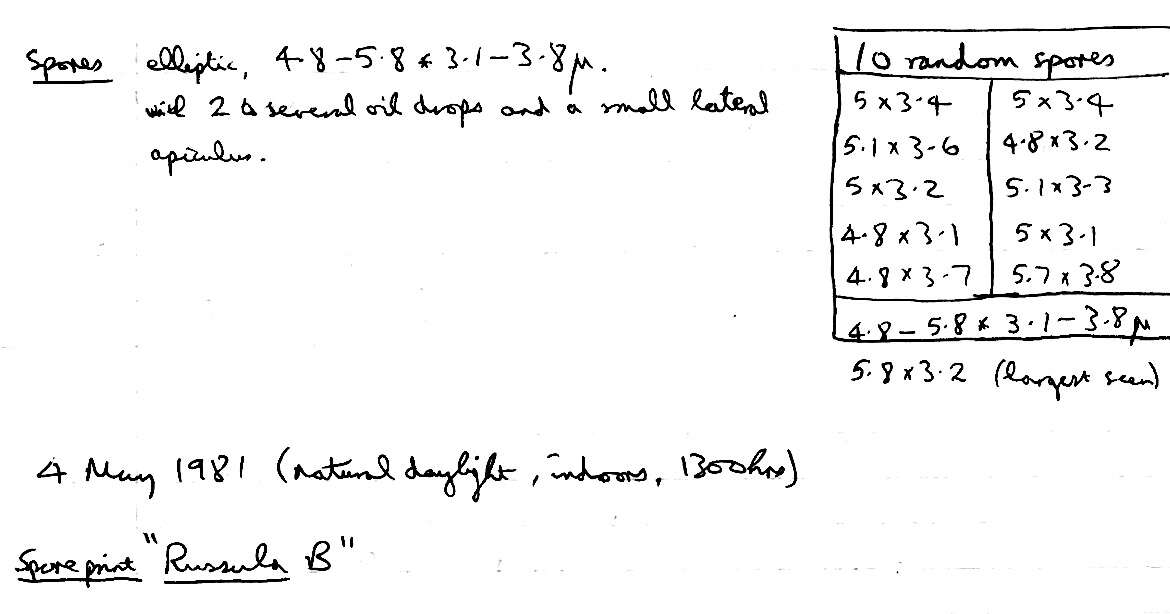 Spores elliptic, 4.8-5.8 × 3.1-3.8 μ.
with 2 to several oil drops and a small lateral
apiculus.
10 random spores
5 × 3.4 5 × 3.4
5.1 × 3.6 4.8 × 3.2
5 × 3.2 5.1 × 3.3
4.8 × 3.1 5 × 3.1
4.8 × 3.7 5.7 × 3.8
4.8 - 5.8 × 3.1 - 3.8 μ
5.8 × 3.2 (largest seen)
4 May 1981 (natural daylight, indoors, 1300hrs)
Spore print "Russula B"